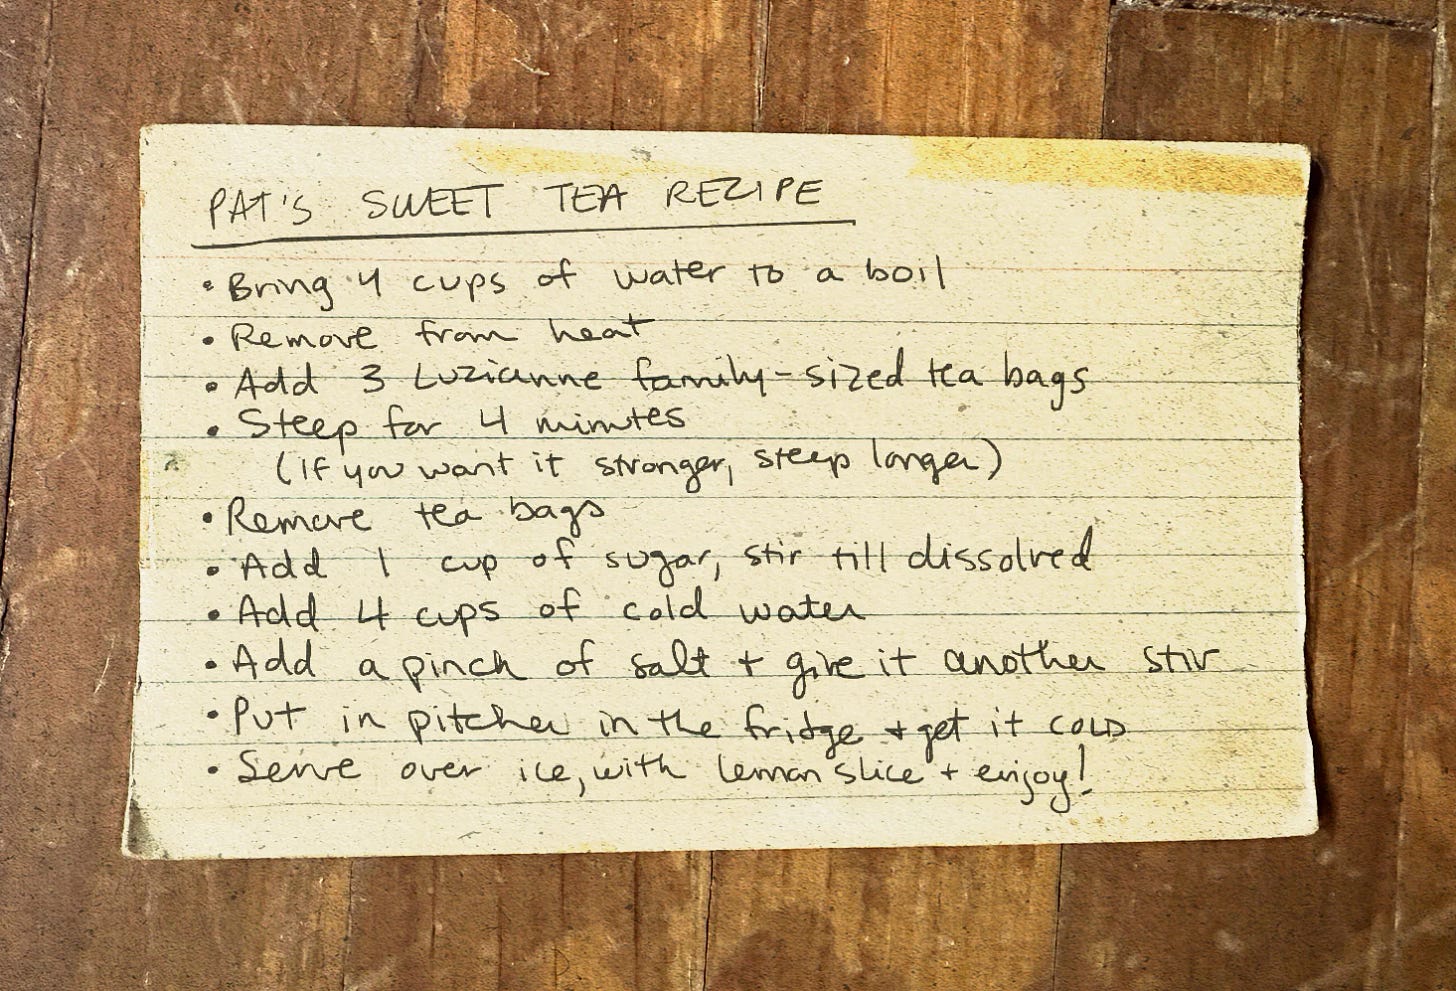 PAT'S SWEET TEA RECIPE
• Bring 4 cups of water to a boil
• Remove from heat
• Add 3 Luzianne family-sized tea bags
• Steep for 4 minutes
(if you want it stronger, steep longer)
• Remove tea bags
• Add 1 cup of sugar, stir till dissolved
• Add 4 cups of cold water
• Add a pinch of salt + give it another stir
• Put in pitcher in the fridge + get it COLD
• Serve over ice, with lemon slice + enjoy!